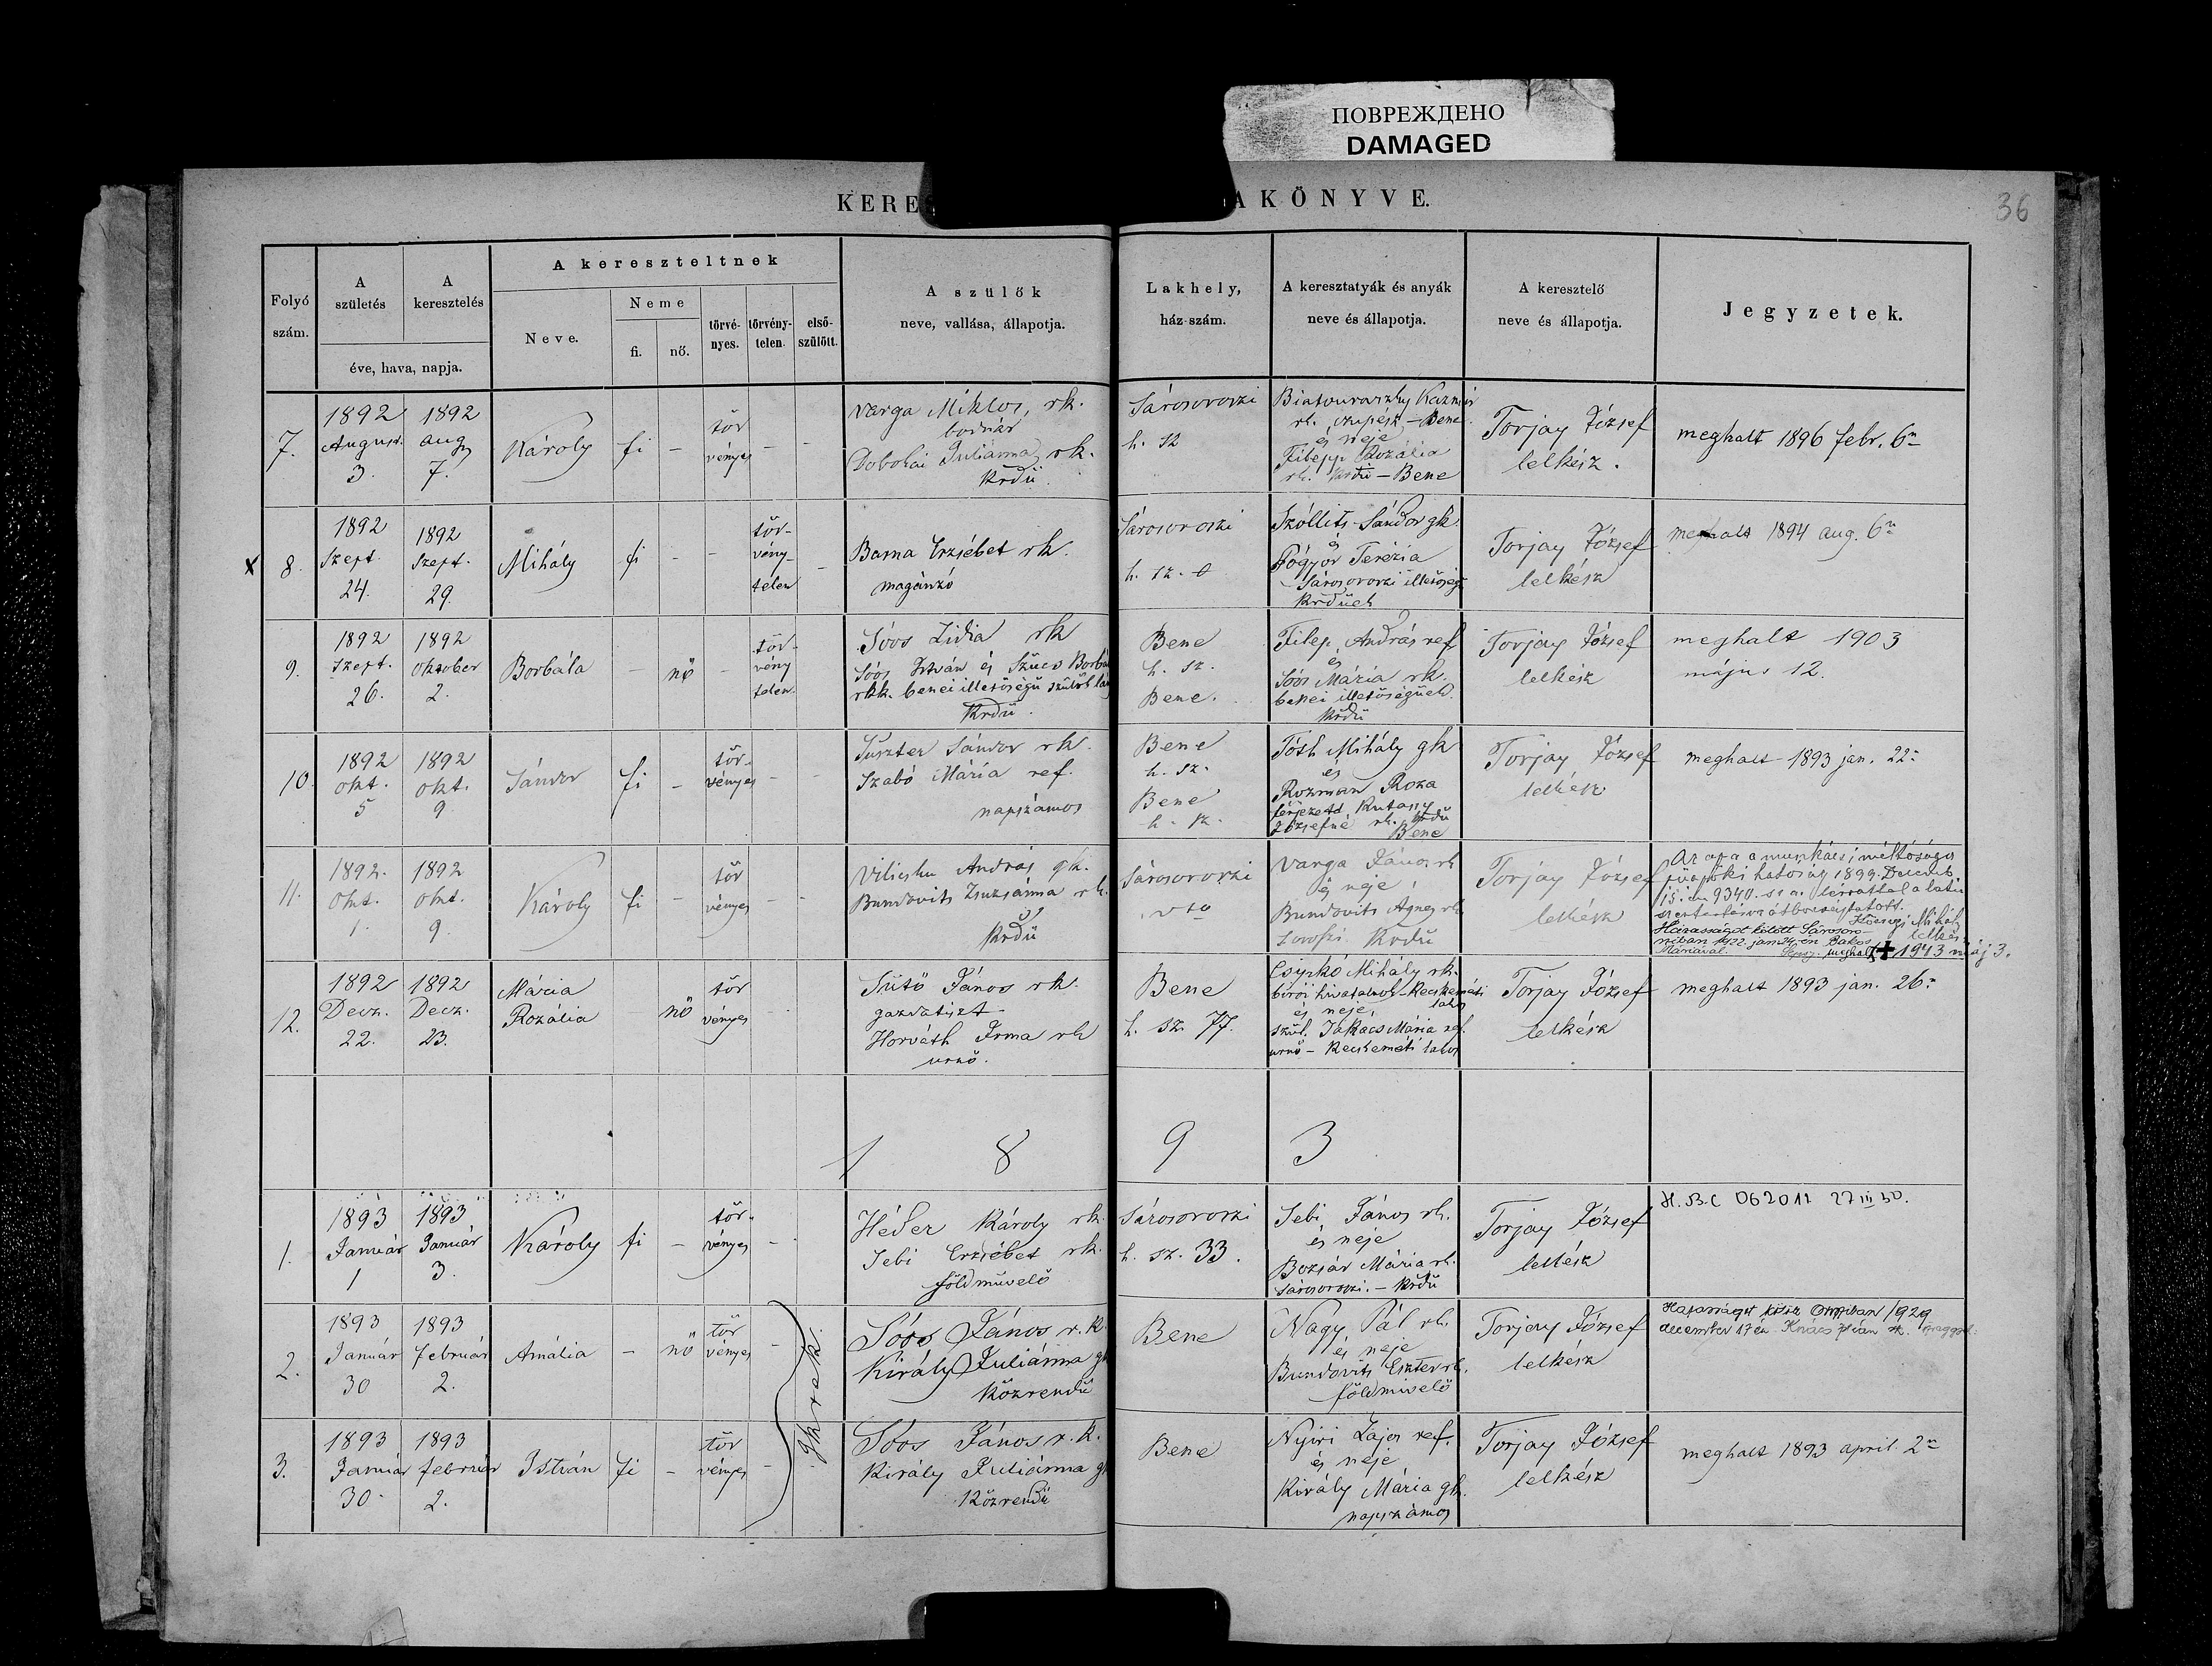 ПОВРЕЖДЕНО
DAMAGED
KERES
AKÖNYVE.
36
Folyó szám.
A születés
A keresztelés
éve, hava, napja.
A kereszteltnek
Neve.
Neme
fi.
nő.
törvé-
nyes.
törvény-
telen.
első-
szülött.
A szülők
neve, vallása, állapotja.
Lakhely,
ház-szám.
A keresztatyák és anyák
neve és állapotja.
A keresztelő
neve és állapotja.
Jegyzetek.
7.
1892
August.
3.
1892
aug
7.
Károly
fi
-
tör
vényes
-
-
Varga Miklos, rk.
bodnár
Dobokai Juliánna, rk.
Krdü.
Sárosoroszi
h. sz
Kazmir
rk. - Bene
és neje
Filepp Rozália
rk. Krdü - Bene
Torjay József
lelkész.
meghalt 1896 febr. 6n
x 8.
1892
Szept.
24.
1892
Szept.
29.
Mihály
fi
-
-
tör-
vény-
telen
-
Barna Erzsébet rk.
magánzó
Sárosoroszi
h. sz. 0
Szóllits Sándor gk.
és
Pógyor Terézia
Sárosoroszi illetőségü
Krdüek
Torjay József
lelkész
meghalt 1894 aug. 6n
9.
1892
Szept.
26.
1892
Oktober
2.
Borbála
-
nö
-
tör-
vény
telen.
Sóos Lidia rk
Sóos István és Szücs Borbá
rkk. benei illetőségü szülők lány
Krdü.
Bene
h. sz.
Bene.
Filep András ref
és
Sóos Mária rk.
benei illetőségüek.
Krdü
Torjay József
lelkész
meghalt 1903
május 12.
10.
1892
okt.
5
1892
okt.
9
Sándor
fi
-
tör-
vényes
-
-
Suszter Sándor rk.
Szabó Mária ref.
napszámos
Bene
h. sz.
Bene
h. sz.
Tóth Mihály gk
és
Rozman Roza
férjezetd Kutasy
Józsefné rk. Krdü
Bene
Torjay József
lelkész
meghalt 1893 jan. 22n
11.
1892.
Okt.
1.
1892
okt.
9.
Károly
fi
-
tör
vényes
-
Vilicsku András gk.
Bundovits Zsuzsánna rk.
Krdü
Sárosoroszi
Varga János rk
és neje,
Bundovits Ágnes rk
Krdü
Torjay József
lelkész
Az apa a munkácsi méltóságos
püspöki hatóság 1899. Decemb.
15. én 9340. sz. a. leirattal a latin
szertartásra átbocsájtatott.
Mihály
lelkész
Házasságot kötött Sárosoro-
sziban 1922. jan. 24 én Bakos
Máriával.
meghalt + 1943 máj 3.
12.
1892
Decz.
22.
1892
Decz.
23.
Mária
Rozália
-
nö
tör
vényes
-
Sütö János rk.
gazdatiszt
Horváth Irma rk
urnő.
Bene
h. sz. 77.
Csipkó Mihály rk.
birói hivatalnok - Kecskeméti
lakos
és neje,
szül. Takács Mária ref.
urnő - Kecskeméti lakos
Torjay József
lelkész
meghalt 1893 jan. 26n
1 8 9 3
1.
1893
Január
1
1893
Január
3.
Károly
fi
-
tör-
vényes
-
Héder Károly rk.
Sebi Erzsébet rk.
földmüvelö
Sárosoroszi
h. sz. 33.
Sebi János rk.
és neje
Bozsár Mária rk.
Sárosoroszi. - Krdü
Torjay József
lelkész
H.B.C 062012 27 III 50.
2.
1893
Január
30
1893
február
2.
Amália
-
nö
tör
vényes
-
gk. rak.
Sóos János r.k.
Király Juliánna gk
Közrendü
Bene
Nagy Pál rk.
és neje
Bundovits Eszter rk.
földmivelö
Torjay József
lelkész
Házasságot kötött 1929
december 17 én
3.
1893
Január
30.
1893
február
2.
István
fi
-
tör
vényes
-
Sóos János r.k.
Király Juliánna gk
Közrendü
Bene
Nyiri Lajos ref.
és neje
Király Mária gk.
napszámos
Torjay József
lelkész
meghalt 1893 april. 2n